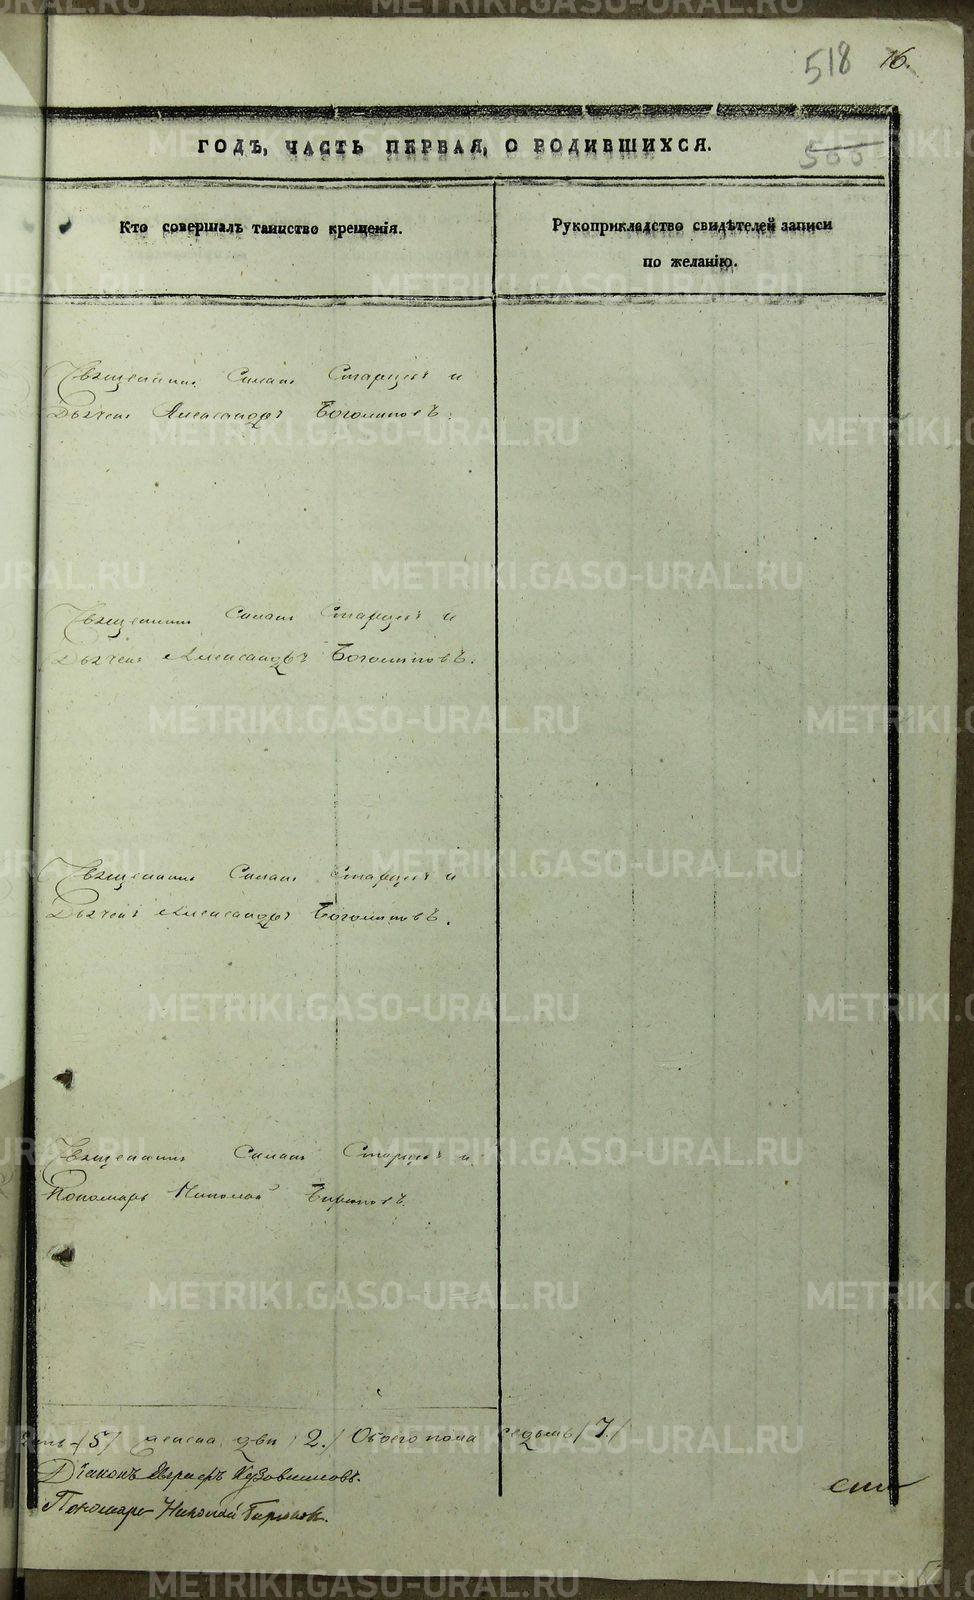 518 16.
ГОДЪ, ЧАСТЬ ПЕРВАЯ, О РОДИВШИХСЯ.
555
Кто совершалъ таинство крещенія.
Рукоприкладство свидѣтелей записи
по желанію.
Священникъ Симеонъ Старцевъ и
Дьячекъ Александръ Боголѣповъ.
Священникъ Симеонъ Старцевъ и
Дьячекъ Александръ Боголѣповъ.
Священникъ Симеонъ Старцевъ и
Дьячекъ Александръ Боголѣповъ.
Священникъ Симеонъ Старцевъ и
Пономарь Николай Бирюковъ.
пять (5) женска два (2.) Обоего пола седьмь (7.)
Діаконъ
Пономарь Николай Бирюковъ.
METRIKI.GASO-URAL.RU